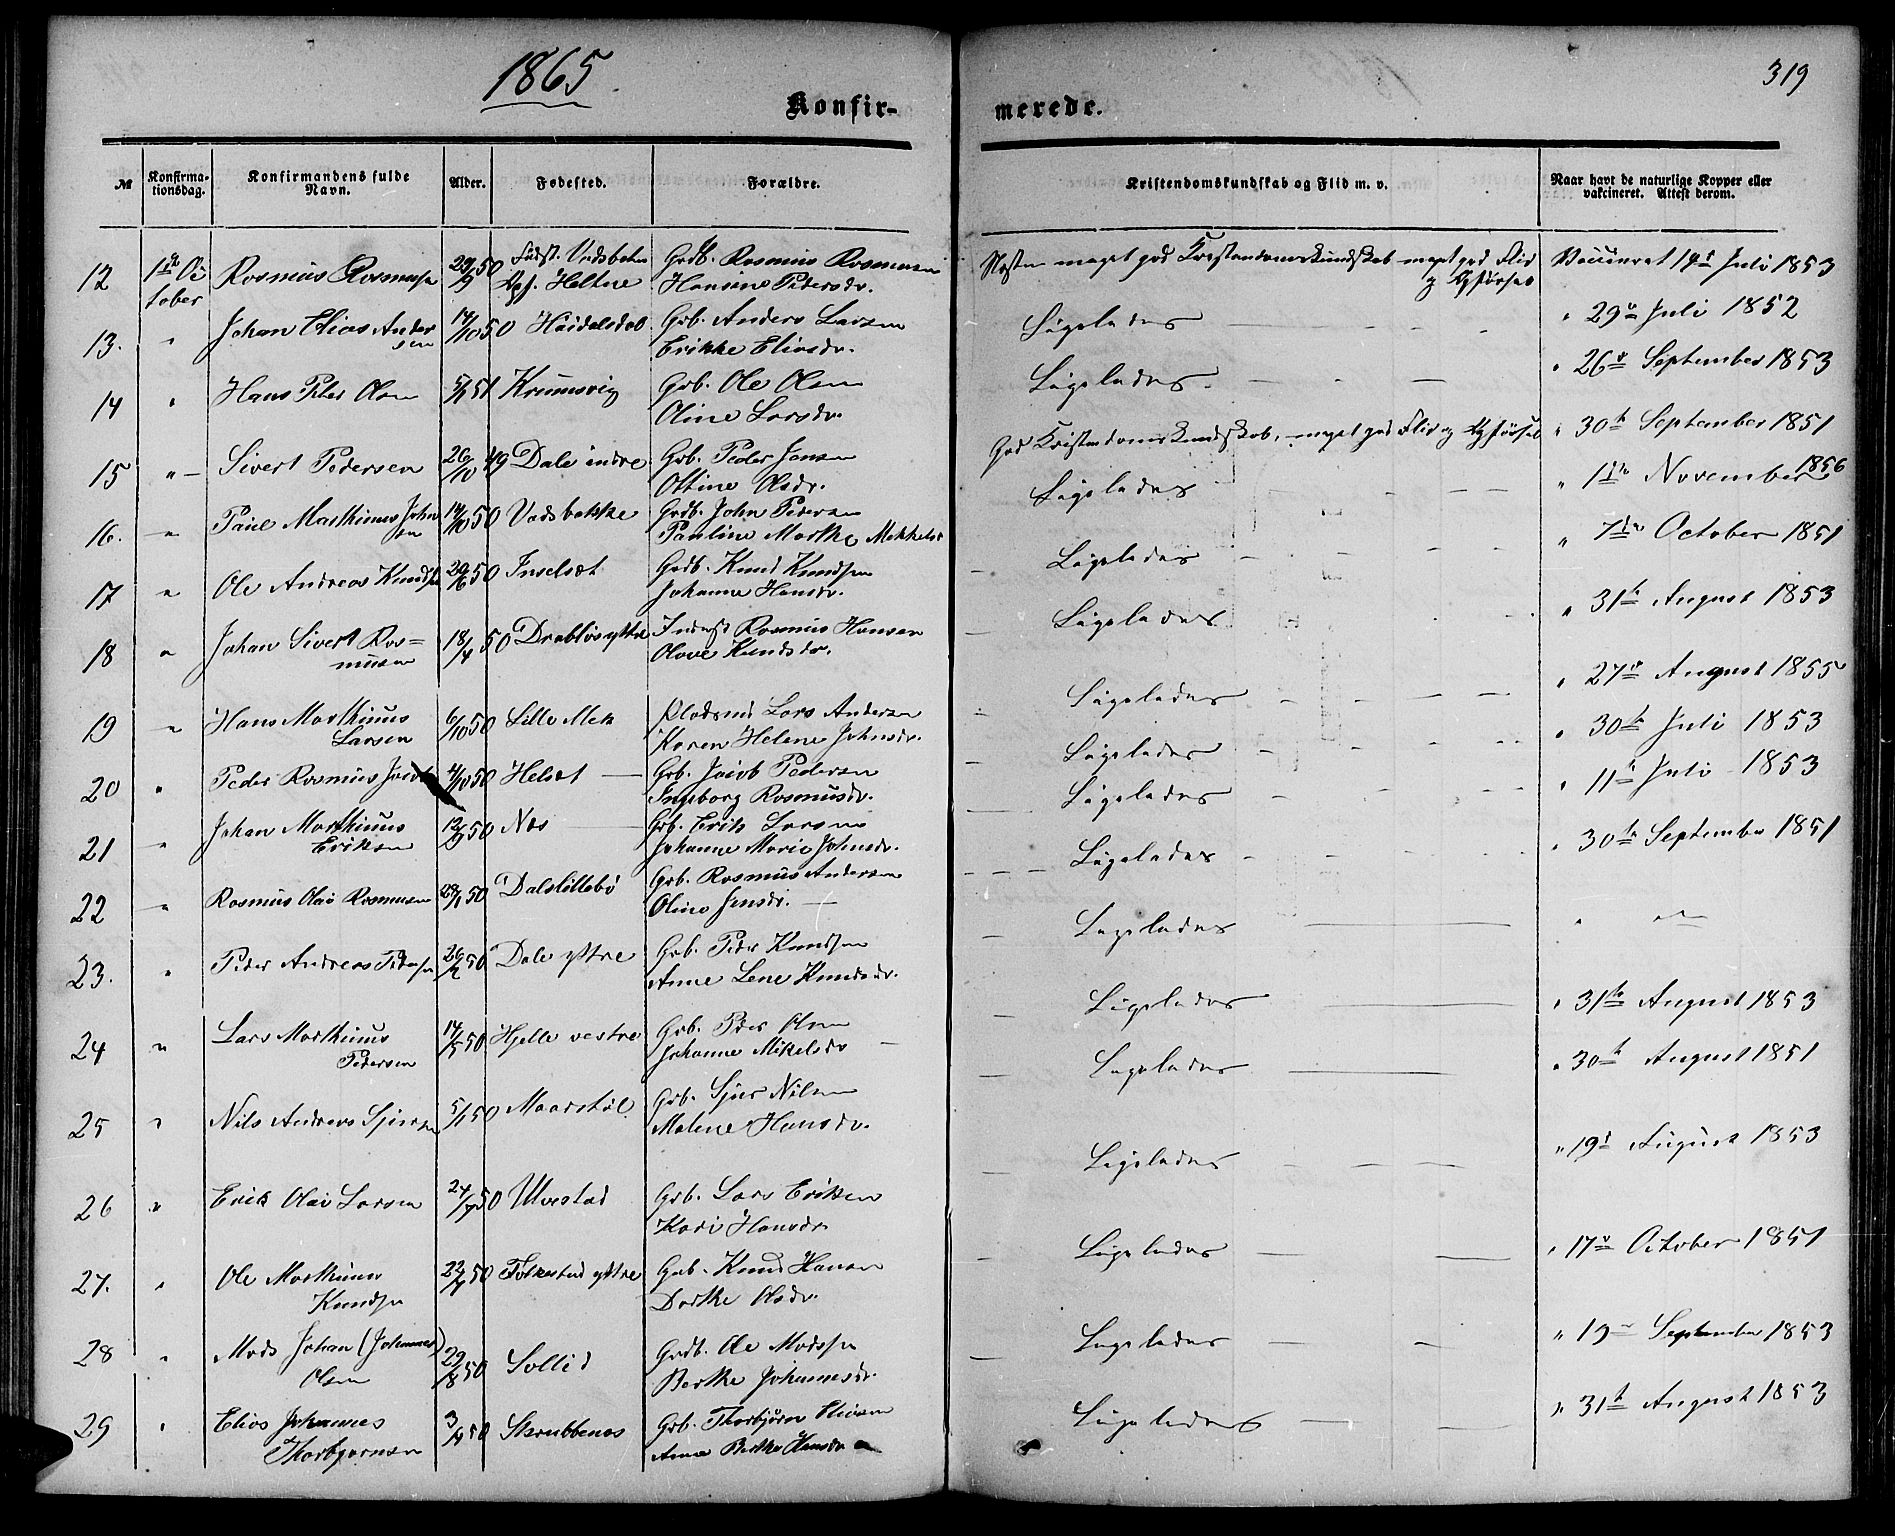 1865
319
Konfir-
merede.
№
Konfirma-
tionsdag.
Konfirmandens fulde
Navn.
Alder.
Fødested.
Forældre.
Kristendomskundskab og Flid m. v.
Naar havt de naturlige Kopper eller
vakcineret. Attest derom.
12 1ste Oc Rasmus Rasmusen 50 Grdb. Rasmus Rasmusen meget god Kristendomskundskab meget god Flid Vaccineret 14d Juli 1853
tober Heltne Hansine Pedersdr. og Opførsel
13. " Johan Elias Ander 14/10 50 Grb. Anders Larsen Ligeledes " 29de Juli 1852
sen Erikke Eliasdr.
14 " Hans Peter Olsen 51 Krumsvig Grb. Ole Olsen Ligeledes " 26de September 1853
Oline Larsdr.
15 " Sivert Pedersen 26/10 49 Dale indre Grb. Peder Jonsen God Kristendomskundskab, meget god Flid og Opførsel " 30te September 1851
Oltine Olsdr.
16. " Paul Mathinus John 14/10 50 Vadsbakke Grdb. John Pedersen Ligeledes " 11te November 1856
sen Pauline Marthe Mekkelsd
17 " Ole Andreas Knudsen 50 Inselset Grdb. Knud Knudsen Ligeledes " 7de October 1851
Johanne Hansdr.
18 " Johan Sivert Ras= 18/4 50 Drabløs yttre Inderst Rasmus Hansen Ligeledes " 31te August 1853
musen Olave Knudsdr.
19 " Hans Mathinus 6/10 50 Lille Mek Pladsmd Lars Andersen Ligeledes " 27de August 1855
Larsen Karen Helene Johnsdr.
20 " Peder Rasmus 4/10 50 Helset Grb. Jacob Pedersen Ligeledes " 30te Juli 1853
Ingeborg Rasmusdr.
21 " Johan Mathinus 12/9 50 Nes Grb. Erik Larsen Ligeledes " 11te Juli 1853
Eriksen Johanne Marie Johnsdr.
22 " Rasmus Olai Rasmusen 50 Dalslillebø Grb. Rasmus Andersen Ligeledes " 30te September 1851
Oline Jensdr.
23. " Peder Andreas Pedersen 26/2 50 Dale yttre Grb. Peder Knudsen Ligeledes " "
Anne Lene Knudsdr.
24 " Lars Mathinus 14/5 50 Hjelle vestre Grb. Peder Olsen Ligeledes " 31te August 1853
Pedersen Johanne Mikelsdr
25 " Nils Andreas Sjursen 5/1 50 Maarstøl Grb. Sjur Nilsen Ligeledes " 30te August 1851
Malene Hansdr.
26 " Erik Olai Larsen 24/7 50 Ulvestad Grb. Lars Eriksen Ligeledes " 19d August 1853
Kari Hansdr
27. " Ole Mathinus 50 Folkestad yttre Grb. Knud Hansen Ligeledes " 17de October 1851
Knudsen Dorthe Olsdr.
28 " Mads Johan (Johannes) 29/8 50 Sollid Grdb. Ole Madsen Ligeledes " 19de September 1853
Olsen Berthe Johannesdr.
29 " Elias Johannes 3/4 50 Skrubbenes Grb. Thorbjørn Eliasen Ligeledes " 31te August 1853
Thorbjørnsen Anne Berthe Hansdr